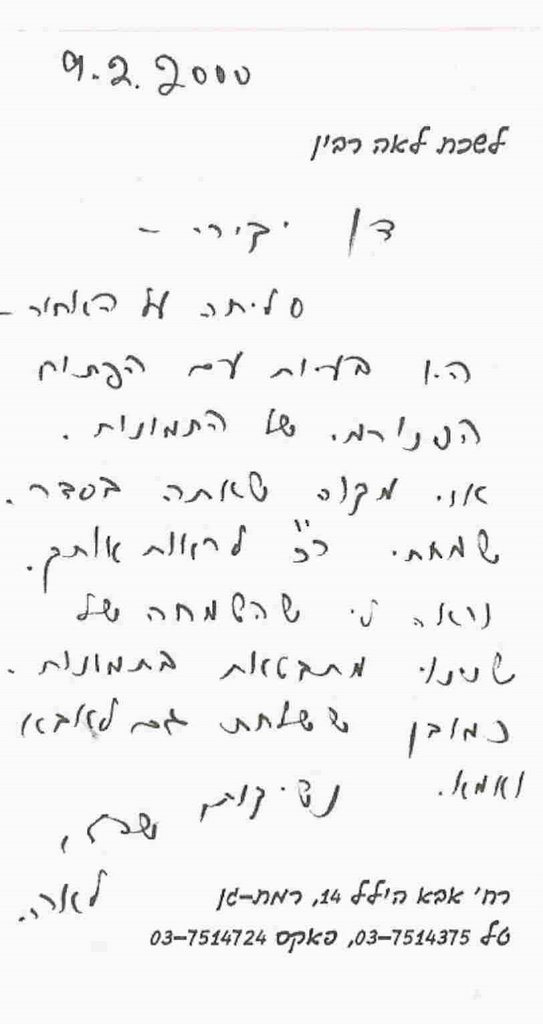 9.2.2000
לשכת לאה רבין
דן יקירי –
סליחה על האחור –
היו בעיות עם הפתוח
הפנורמי של התמונות.
אני מקוה שאתה בסדר.
שמחתי כ"כ לראות אותך.
נראה לי שהשמחה של
שנינו מתבטאת בתמונות.
כמובן ששלחתי גם לאבא
ואמא. נשיקות
שלך,
לאה.
רח' אבא הילל 14, רמת-גן
טל 03-7514375, פאקס 03-7514724